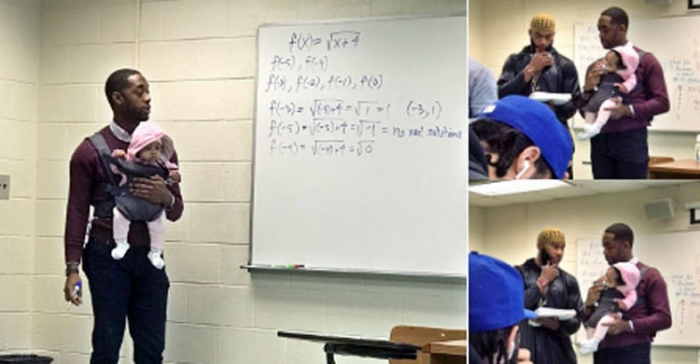 f(x) = √x+4
f(-5), f(-4)
f(-3), f(-2), f(-1), f(0)
f(-3) = √(-3)+4 = √1 = 1 (-3, 1)
f(-5) = √(-5)+4 = √-1 = no real solutions
f(-4) = √(-4)+4 = √0